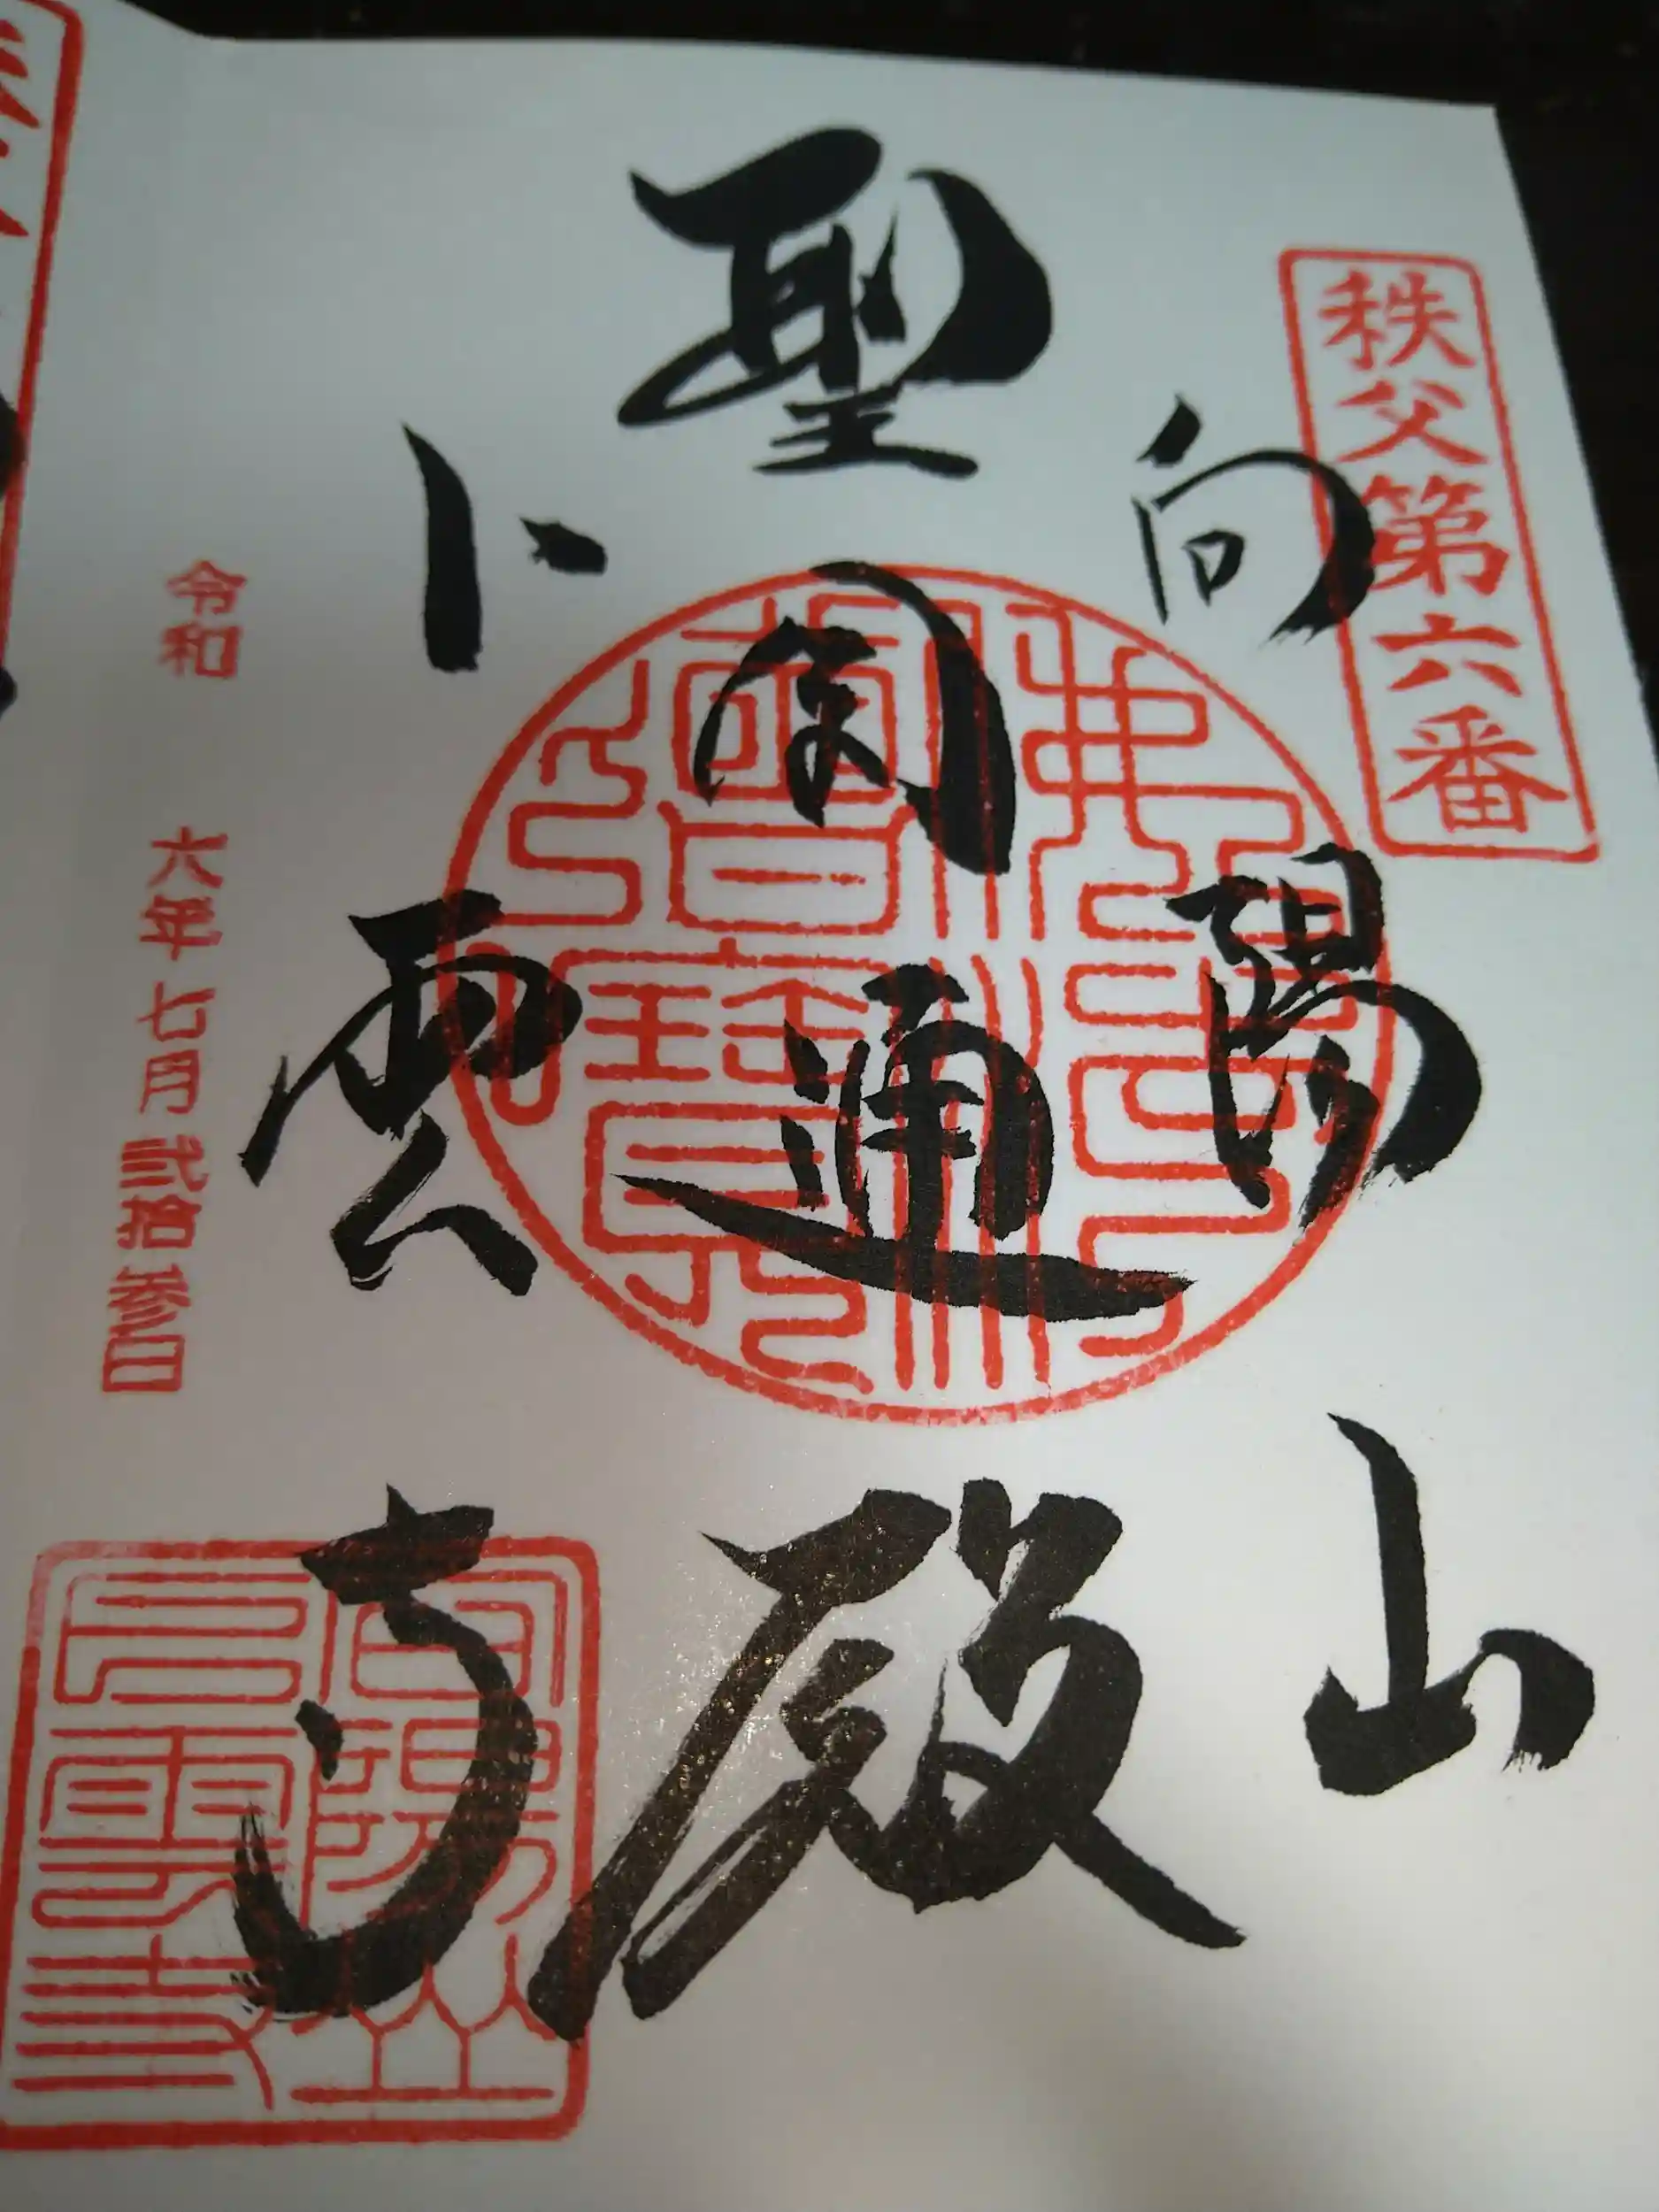 秩父第六番
向陽山
聖圓通殿
卜雲寺
令和 六年 七月 弐拾参日
佛法僧寶
向陽山
卜雲寺